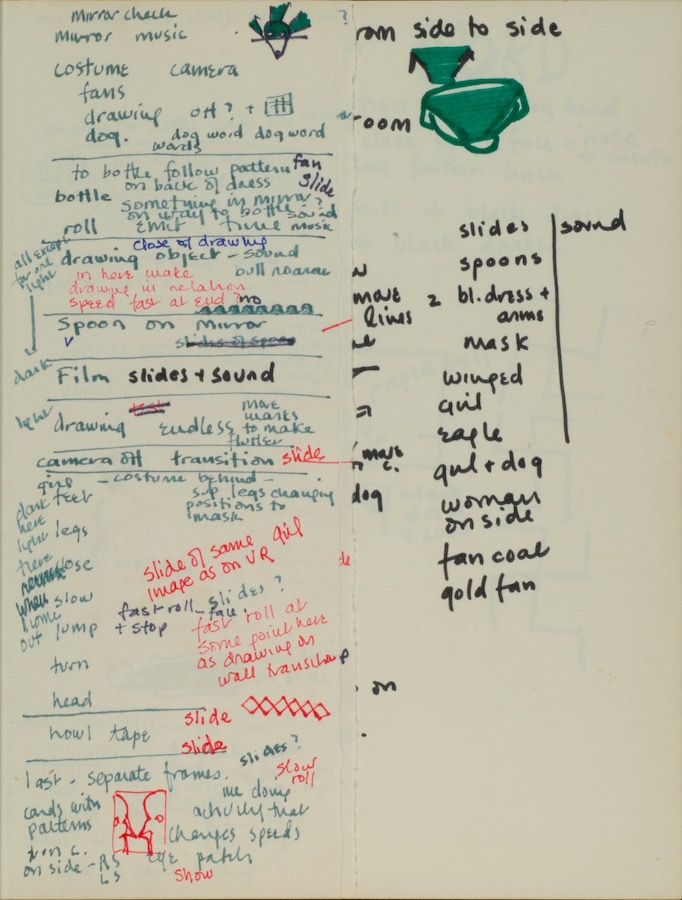 Mirror check
Mirror music
?
costume camera
fans
drawing off? +
dog. dog word dog word
words
to bottle follow pattern fan
on back of dress slide
bottle something in mirror?
on way to bottle sound
roll EMIT time music
close of drawing
all except
for one
light
drawing object - sound
in here make
drawing in relation
speed fast at end? no
Spoon on mirror
v slides of spoon
dark
Film slides + sound
light
move
drawing endless to make
flutter
camera off transition slide
- costume behind -
dark feet sup legs changing
here positions to
light legs mask
here
close
when slow
home
out jump
slide of same girl
image as on VR
slides?
fast roll - face.
+ stop
fast roll at
some point here
as drawing on
wall
turn
head
slide
howl tape
slide
slides?
last - separate frames.
slow
roll
cards with
patterns
me doing
activity that
changes speeds
turn c.
on side - RS eye patch
LS
show
rom side to side
oom
slides
sound
spoons
move 2 bl. dress +
lines arms
mask
winged
girl
eagle
move
c.
girl + dog
dog
woman
on side
fan coat
gold fan
on